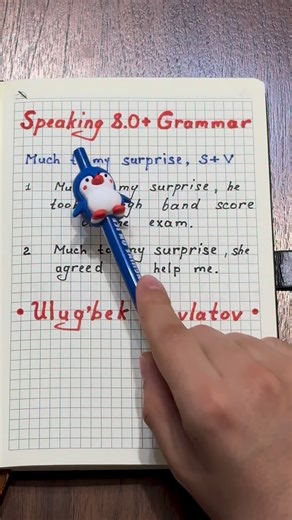 Speaking 8.0+ Grammar
Much my surprise, S+V
1 my surprise, he
band score
exam.
2 Much my surprise, she
agreed help me.
• Ulug'bek •